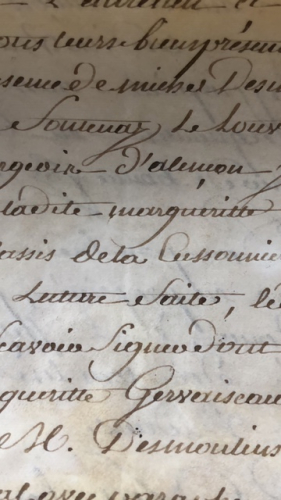 et
ous leurs bien présen
sence de michel Des
Fontenay Le Louv
rgeois d'alencon
ladite margueritte
assis de la Cussonnie
Lecture faite, le
scavoir Signer dont
gueritte Gervaiseau
M. Desmoulins